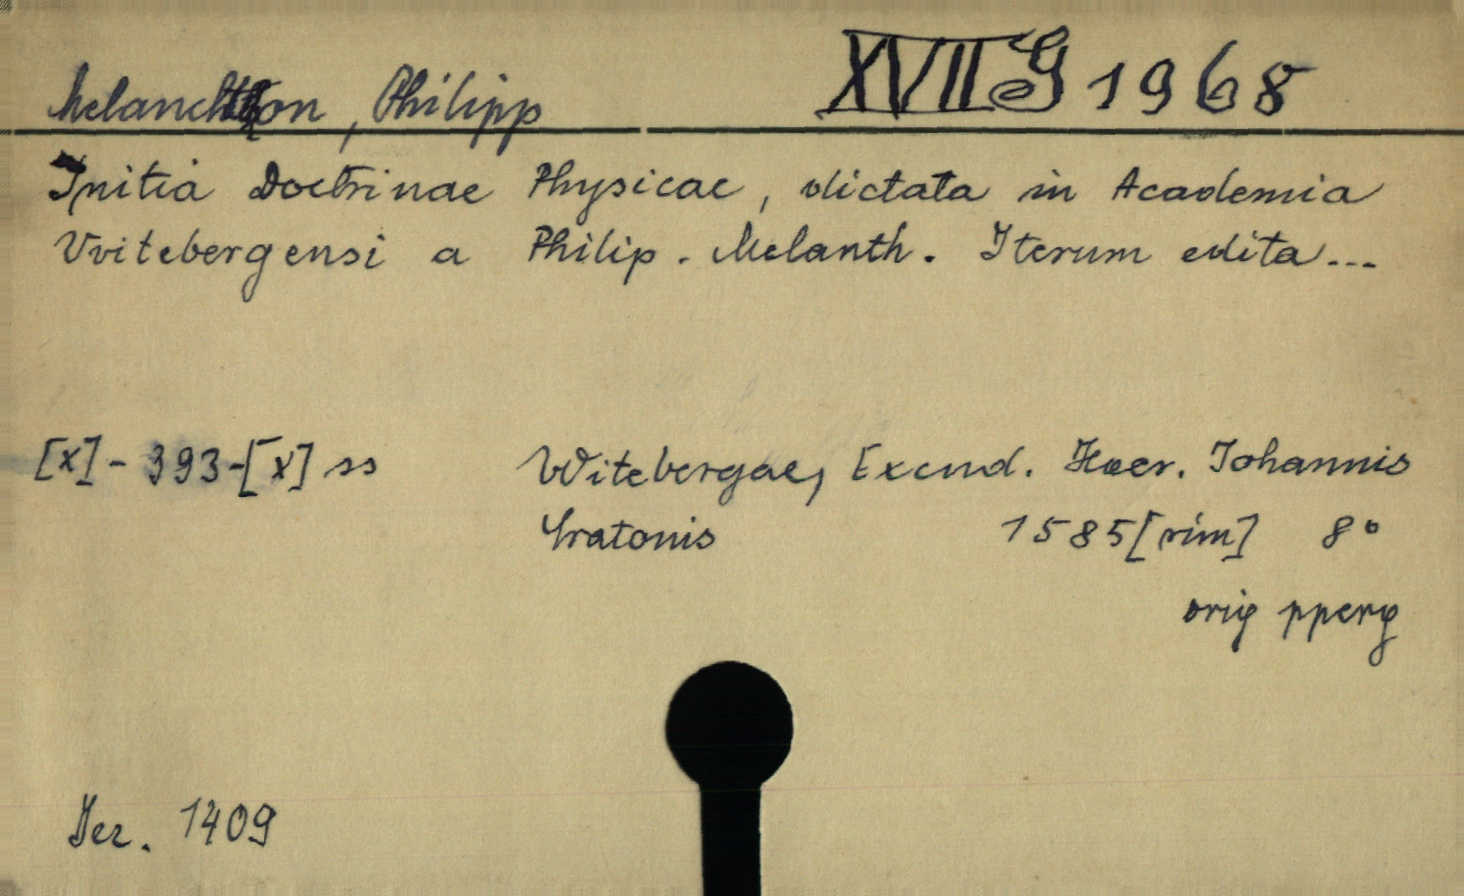 Melanchthon, Philipp
XVII G 1968
Initia Doctrinae Physicae, dictata in Academia
Vvitebergensi a Philip. Melanth. Iterum edita...
[x]-393-[x] ss
Witebergae, Excud. Haer. Johannis
Cratonis 1585 [rim] 8°
orig pperg
Jez. 1409